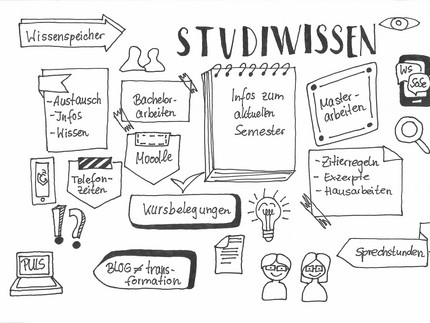 Wissenspeicher
STUDIWISSEN
WS
SoSe
- Austausch
- Infos
- Wissen
Bachelor-
arbeiten
Infos zum
aktuellen
Semester
Master-
arbeiten
Moodle
Telefon-
zeiten
- Zitierregeln
- Exzerpte
- Hausarbeiten
!?
Kursbelegungen
Sprechstunden
PULS
BLOG ≠ trans-
formation